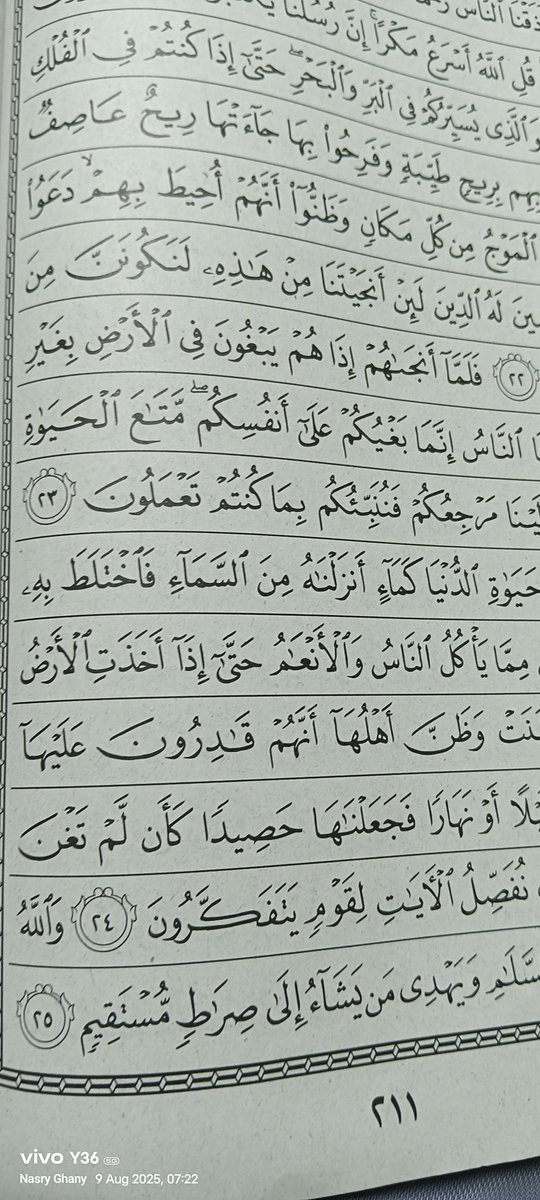 ذَقْنَا النَّاسَ
قُلِ اللَّهُ أَسْرَعُ مَكْرًا ۚ إِنَّ رُسُلَنَا
وَالَّذِى يُسَيِّرُكُمْ فِى الْبَرِّ وَالْبَحْرِ ۖ حَتَّىٰٓ إِذَا كُنتُمْ فِى الْفُلْكِ
بِهِم بِرِيحٍ طَيِّبَةٍ وَفَرِحُوا۟ بِهَا جَآءَتْهَا رِيحٌ عَاصِفٌ
الْمَوْجُ مِن كُلِّ مَكَانٍ وَظَنُّوٓا۟ أَنَّهُمْ أُحِيطَ بِهِمْ ۙ دَعَوُا۟
ينَ لَهُ الدِّينَ لَئِنْ أَنجَيْتَنَا مِنْ هَٰذِهِۦ لَنَكُونَنَّ مِنَ
٢٢ فَلَمَّآ أَنجَىٰهُمْ إِذَا هُمْ يَبْغُونَ فِى الْأَرْضِ بِغَيْرِ
ا النَّاسُ إِنَّمَا بَغْيُكُمْ عَلَىٰٓ أَنفُسِكُم ۖ مَّتَٰعَ الْحَيَوٰةِ
لَيْنَا مَرْجِعُكُمْ فَنُنَبِّئُكُم بِمَا كُنتُمْ تَعْمَلُونَ ٢٣
حَيَوٰةِ الدُّنْيَا كَمَآءٍ أَنزَلْنَٰهُ مِنَ السَّمَآءِ فَاخْتَلَطَ بِهِۦ
مِمَّا يَأْكُلُ النَّاسُ وَالْأَنْعَٰمُ حَتَّىٰٓ إِذَآ أَخَذَتِ الْأَرْضُ
نَتْ وَظَنَّ أَهْلُهَآ أَنَّهُمْ قَٰدِرُونَ عَلَيْهَآ
يْلًا أَوْ نَهَارًا فَجَعَلْنَٰهَا حَصِيدًا كَأَن لَّمْ تَغْنَ
نُفَصِّلُ الْءَايَٰتِ لِقَوْمٍ يَتَفَكَّرُونَ ٢٤ وَاللَّهُ
سَّلَٰمِ وَيَهْدِى مَن يَشَآءُ إِلَىٰ صِرَٰطٍ مُّسْتَقِيمٍ ٢٥
٢١١
vivo Y36 5G
Nasry Ghany 9 Aug 2025, 07:22